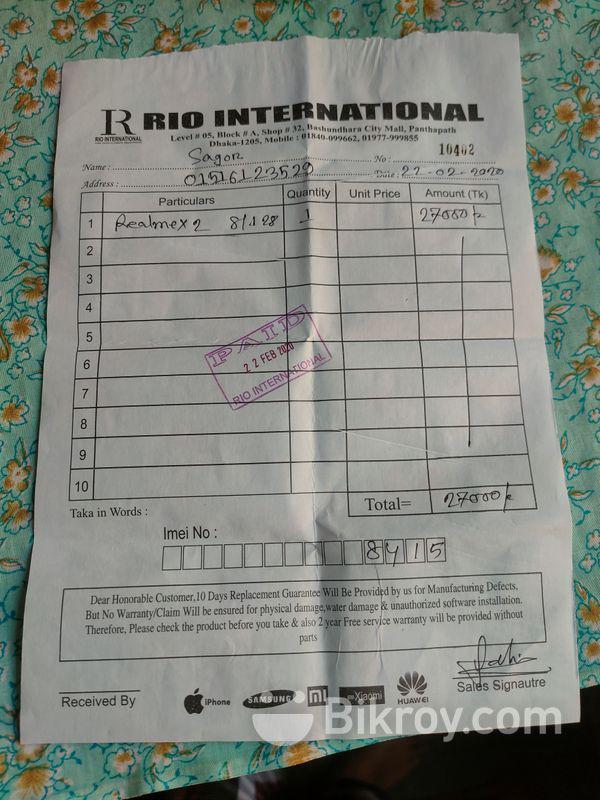 R RIO INTERNATIONAL
RIO INTERNATIONAL
Level # 05, Block # A, Shop # 32, Bashundhara City Mall, Panthapath
Dhaka-1205, Mobile : 01840-099662, 01977-999855
Name : Sagor No : 10402
Address : 01516123529 Date : 22-02-2020
Particulars Quantity Unit Price Amount (Tk)
1 Realmex2 8/128 1 27000/-
2
3
4
5
6
7
8
9
10
PAID
22 FEB 2020
RIO INTERNATIONAL
Total= 27000/-
Taka in Words :
Imei No :
8415
Dear Honorable Customer,10 Days Replacement Guarantee Will Be Provided by us for Manufacturing Defects,
But No Warranty/Claim Will be ensured for physical damage,water damage & unauthorized software installation.
Therefore, Please check the product before you take & also 2 year Free service warranty will be provided without
parts
Received By
iPhone SAMSUNG mi Xiaomi HUAWEI
Sales Signautre
Bikroy.com